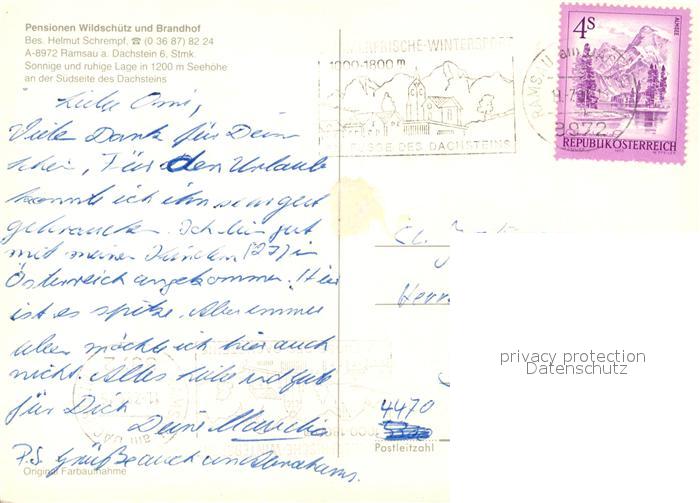 Pensionen Wildschütz und Brandhof
Bes. Helmut Schrempf, ☎ (0 36 87) 82 24
A-8972 Ramsau a. Dachstein 6, Stmk.
Sonnige und ruhige Lage in 1200 m Seehöhe
an der Südseite des Dachsteins
Liebe Omi,
Vielen Dank für Dein
Für den Urlaub
konnte ich ihn sehr gut
gebrauchen. Ich bin gut
mit meinen Kindern (27) in
Österreich angekommen. Hier
ist es spitze. Aber immer
leben möchte ich hier auch
nicht. Alles Liebe und Gute
für Dich
Deine
P.S. Grüße auch an Abrahams.
Original Farbaufnahme
ERFRISCHE-WINTERSPORT
1000-1800 m
FUSSE DES DACHSTEINS
4S
ALMSEE
REPUBLIK ÖSTERREICH
8972
Herrn
4470
Postleitzahl
privacy protection
Datenschutz